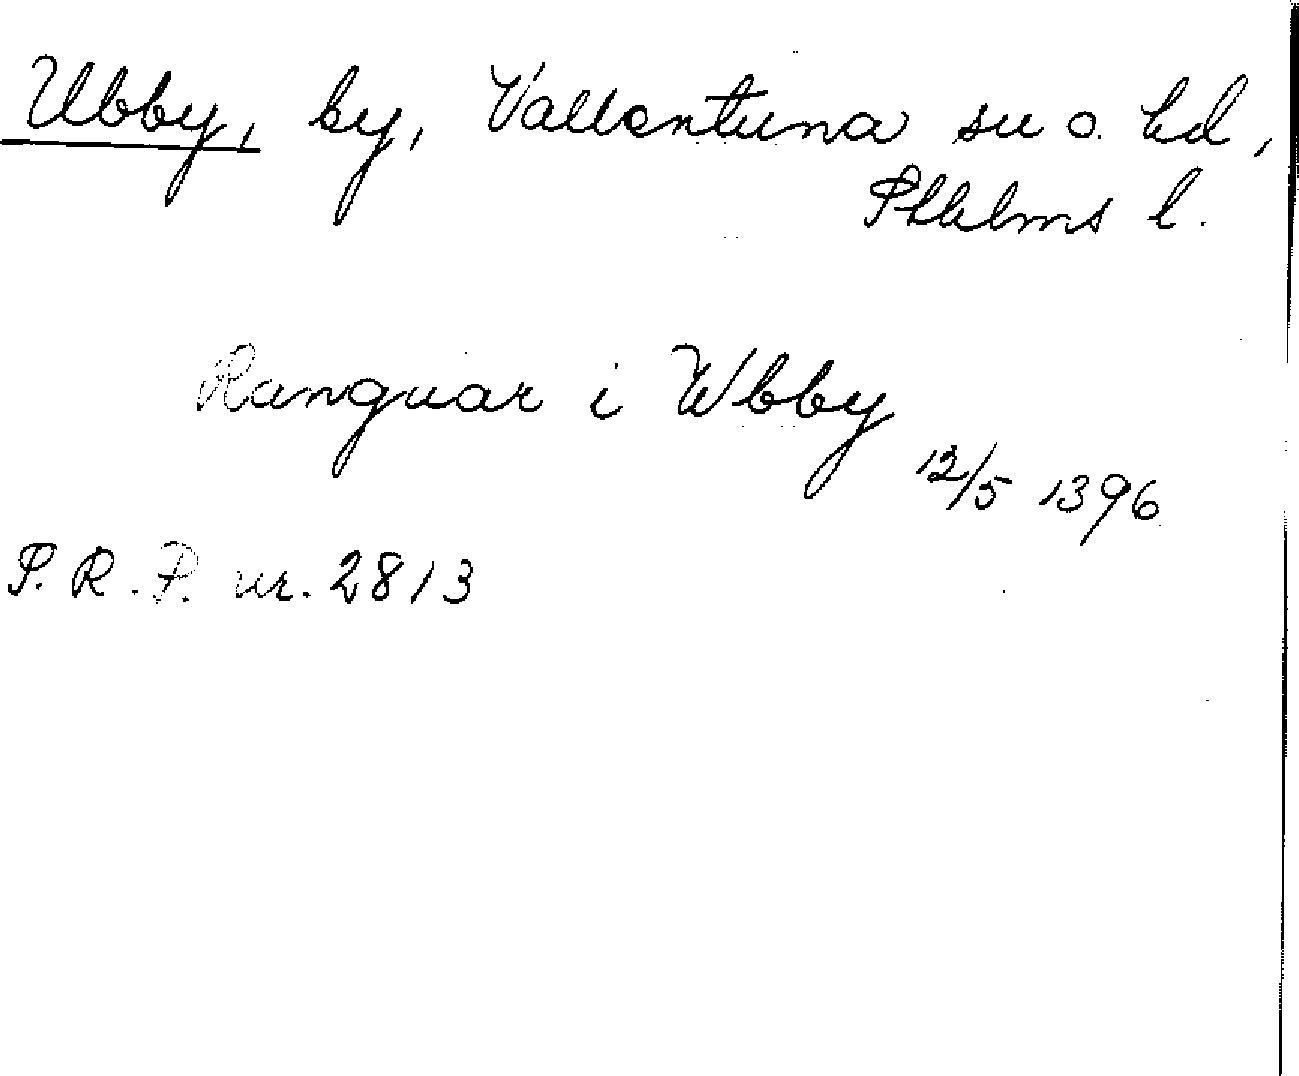 Ubby, by, Vallentuna sn o. hd,
Sthlms l.
Ranguar i Wbby
12/5 1396
S. R. P. nr. 2813